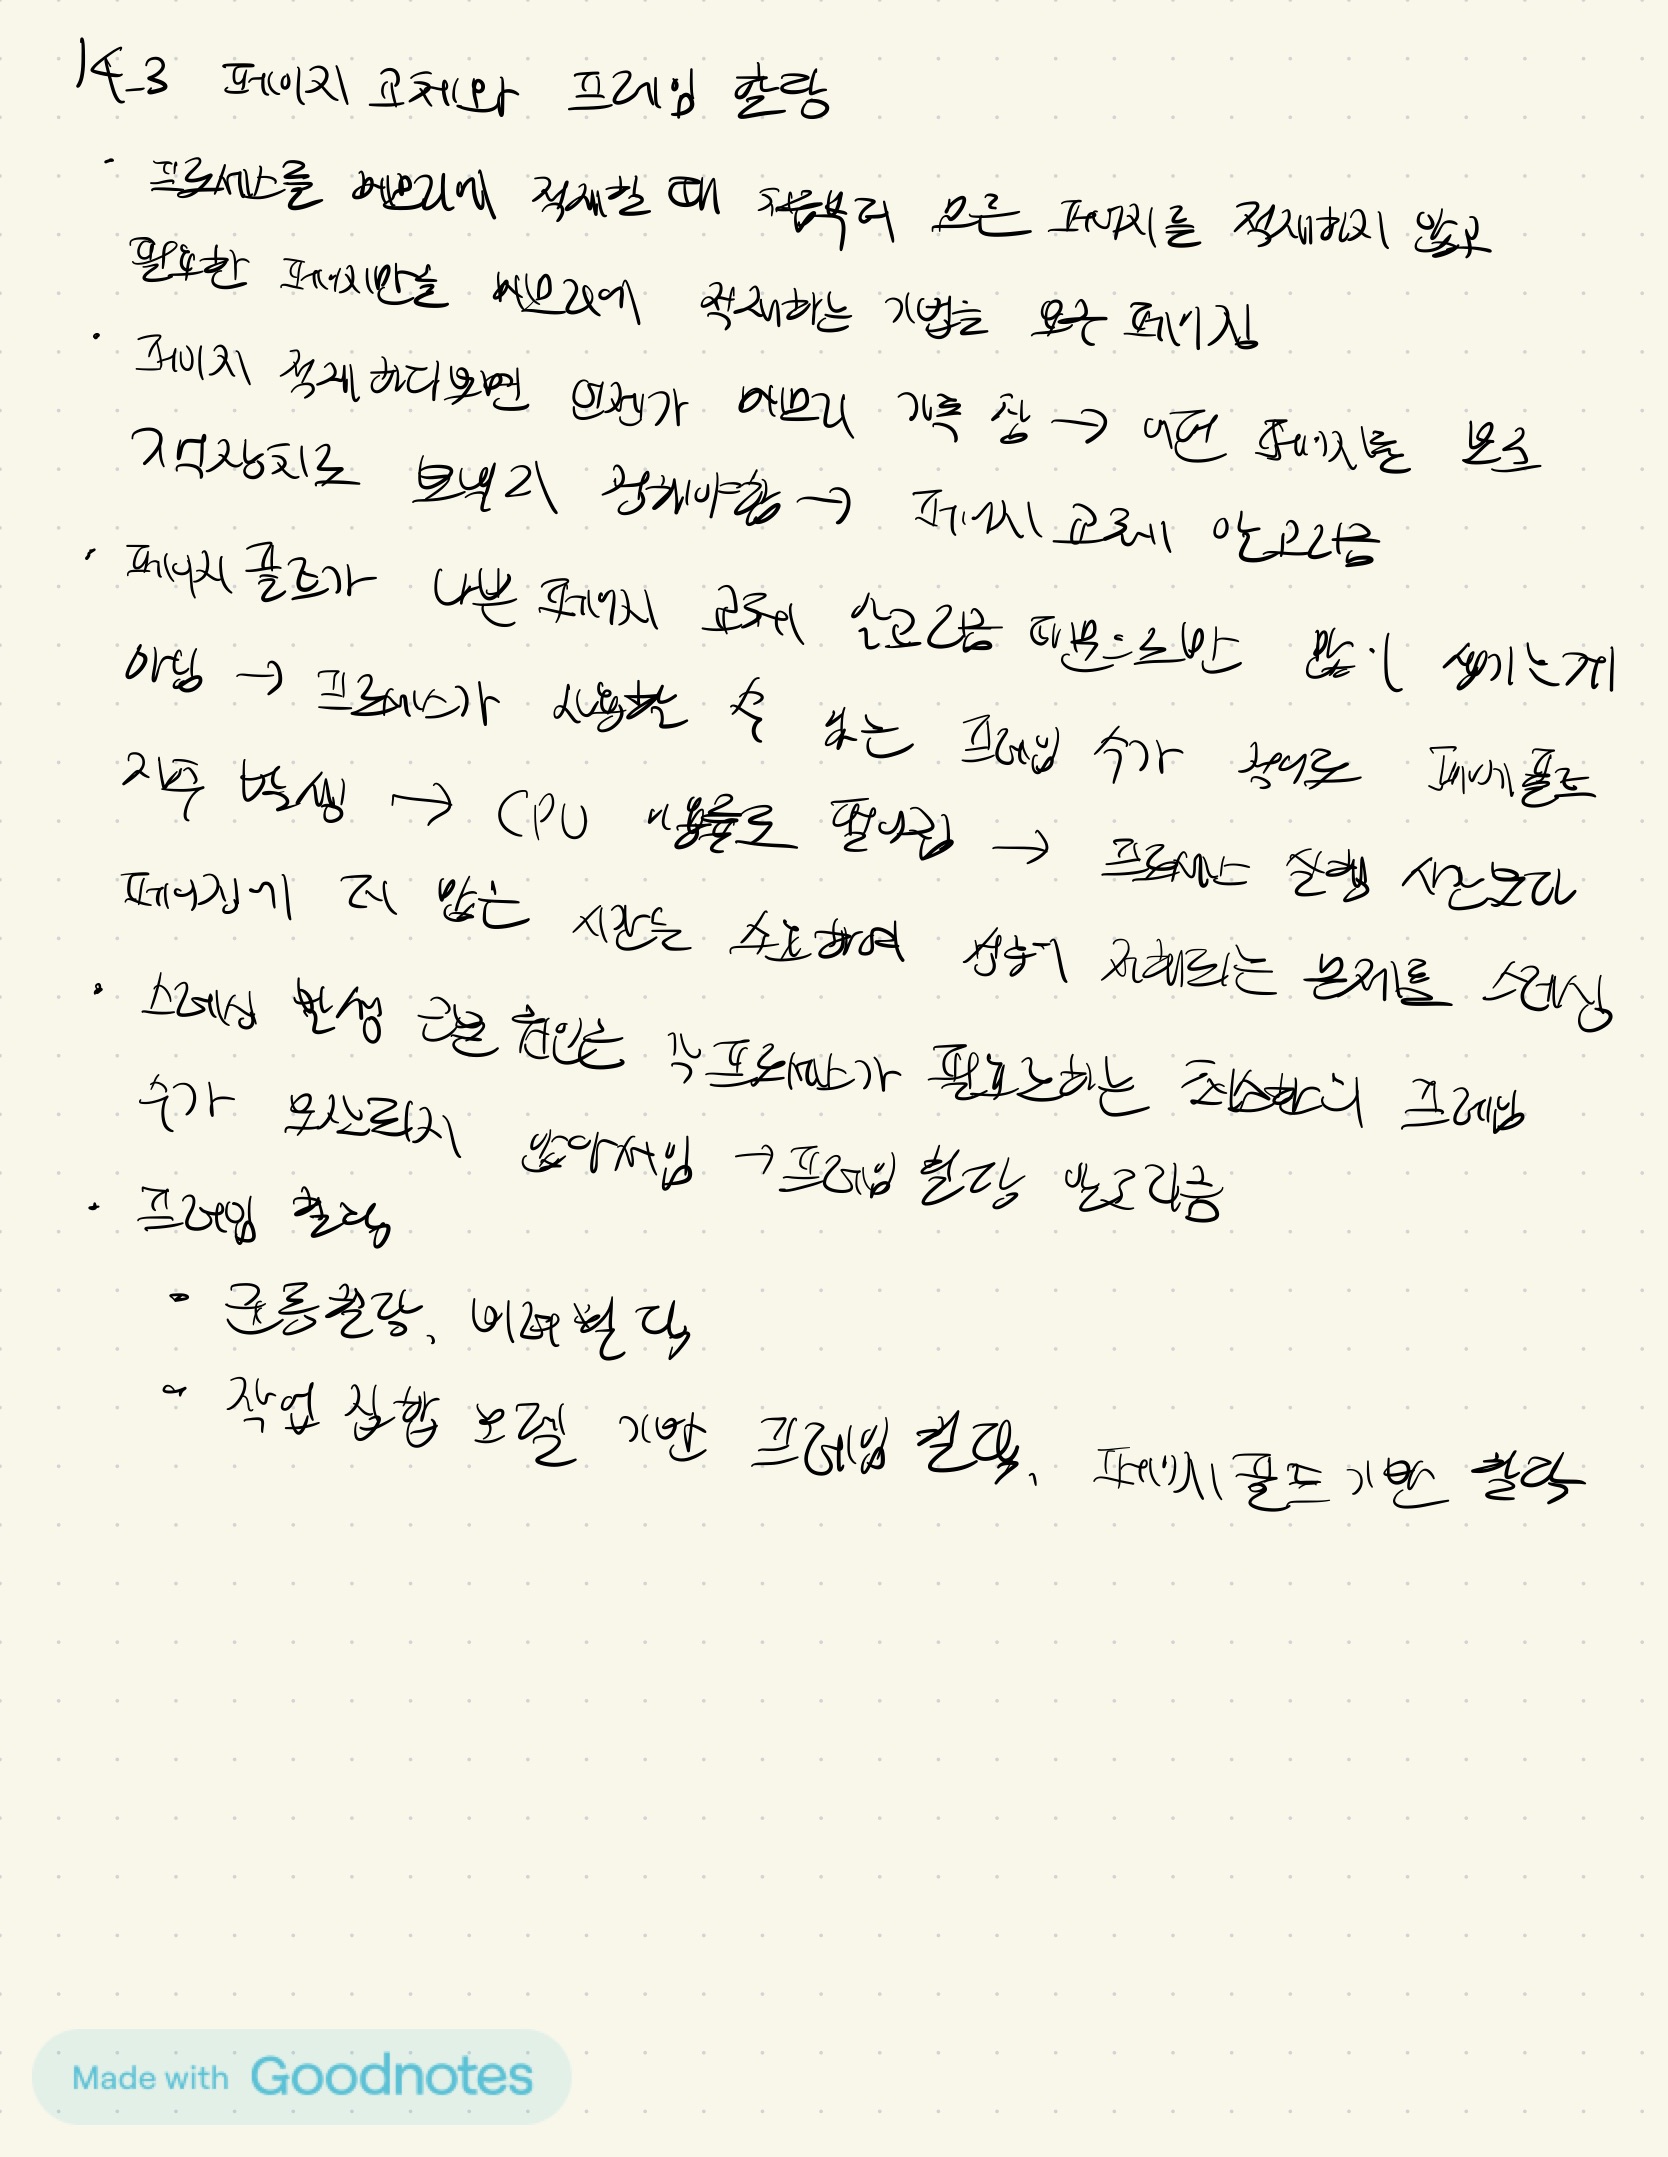 14-3 페이지 교체와 프레임 할당
· 프로세스를 메모리에 적재할 때 처음부터 모든 페이지를 적재하지 않고
필요한 페이지만을 메모리에 적재하는 기법은 요구 페이징
· 페이지 적재하다보면 언젠가 메모리 가득 참 → 어떤 페이지를 보조
기억장치로 보낼리 정해야함 → 페이지 교체 알고리즘
· 페이지 폴트가 나쁜 페이지 교체 알고리즘 때문으로만 많이 생기는게
아님 → 프로세스가 사용할 수 있는 프레임 수가 적어도 페이지 폴트
자주 발생 → CPU 이용률도 떨어짐 → 프로세스 실행 시간보다
페이징에 더 많은 시간을 소요하여 성능이 저해되는 문제를 스레싱
· 스레싱 발생 근본 원인은 각 프로세스가 필요로하는 최소한의 프레임
수가 보장되지 않아서임 → 프레임 할당 알고리즘
· 프레임 할당
· 균등할당, 비례할당
· 작업 집합 모델 기반 프레임 할당, 페이지 폴트 기반 할당
Made with Goodnotes